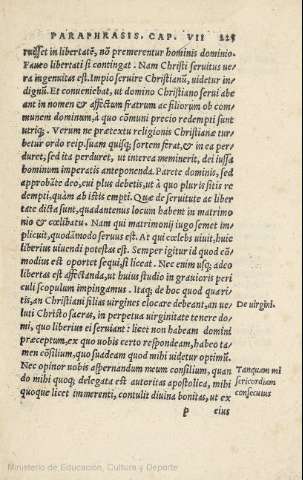 PARAPHRASIS. CAP. VII 225
ruisset in libertatē, nõ premerentur hominis dominio.
Faueo libertati si contingat. Nam Christi seruitus ue-
ra ingenuitas est. Impio seruire Christianũ, uidetur in-
dignũ. Et conueniebat, ut domino Christiano serui abe
ant in nomen & affectum fratrum ac filiorum ob com-
munem dominum, à quo cõmuni precio redempti sunt
utriq;. Verum ne prætextu religionis Christianæ tur-
betur ordo reip. suam quisq; sortem ferat, & in ea per-
duret, sed ita perduret, ut interea meminerit, dei iussa
hominum imperatis anteponenda. Parete dominis, sed
approbãte deo, cui plus debetis, ut à quo pluris sitis re
dempti, quàm ab istis empti. Quæ de seruitute ac liber
tate dicta sunt, quadantenus locum habent in matrimo
nio & cælibatu. Nam qui matrimonij iugo semet im-
plicuit, quodãmodo seruus est. At qui cœlebs uiuit, huic
liberius uiuendi potestas est. Semper igitur id quod cõ-
modius est oportet sequi, si liceat. Nec enim usq; adeo
libertas est affectanda, ut huius studio in grauioris peri
culi scopulum impingamus. Itaq; de hoc quod quæri-
tis, an Christiani filias uirgines elocare debeant, an ue-
luti Christo sacras, in perpetua uirginitate tenere do-
mi, quo liberius ei seruiant: licet non habeam domini
præceptum, ex quo uobis certo respondeam, habeo ta-
men cõsilium, quo suadeam quod mihi uidetur optimũ.
Nec opinor uobis aspernandum meum consilium, quan
do mihi quoq; delegata est autoritas apostolica, mihi
quoque licet immerenti, contulit diuina bonitas, ut ex
De uirgini.
Tanquam mi
sericordiam
consecutus
p eius
Ministerio de Educación, Cultura y Deporte